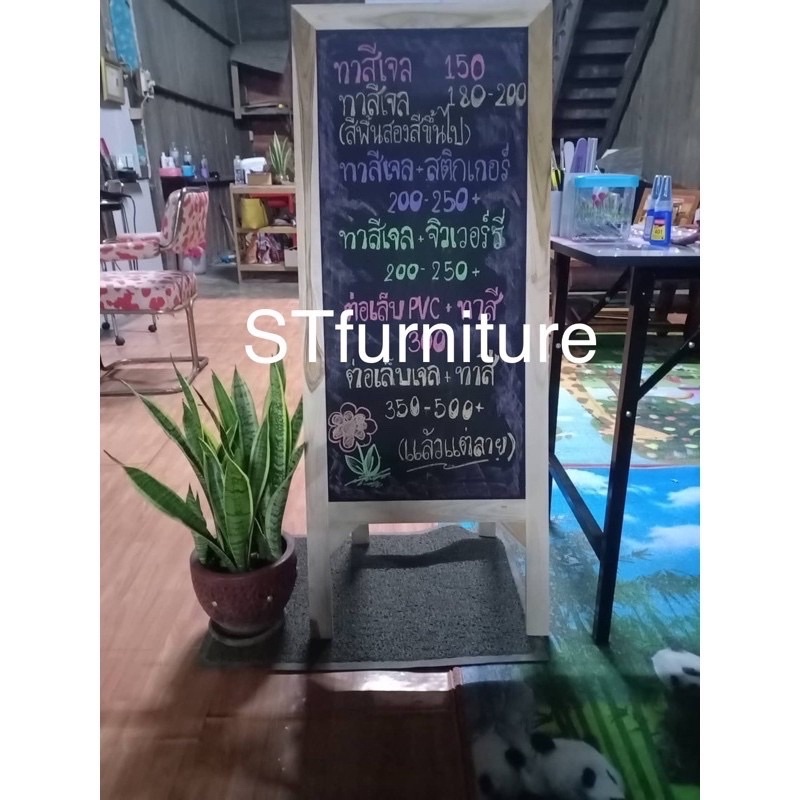 ทาสีเจล 150
ทาสีเจล 180-200
(สีพื้นสองสีขึ้นไป)
ทาสีเจล+สติกเกอร์
200-250+
ทาสีเจล+จิวเวอร์รี่
200-250+
ต่อเล็บ PVC + ทาสี
300
STfurniture
ต่อเล็บเจล+ทาสี
350-500+
(แล้วแต่ลาย)